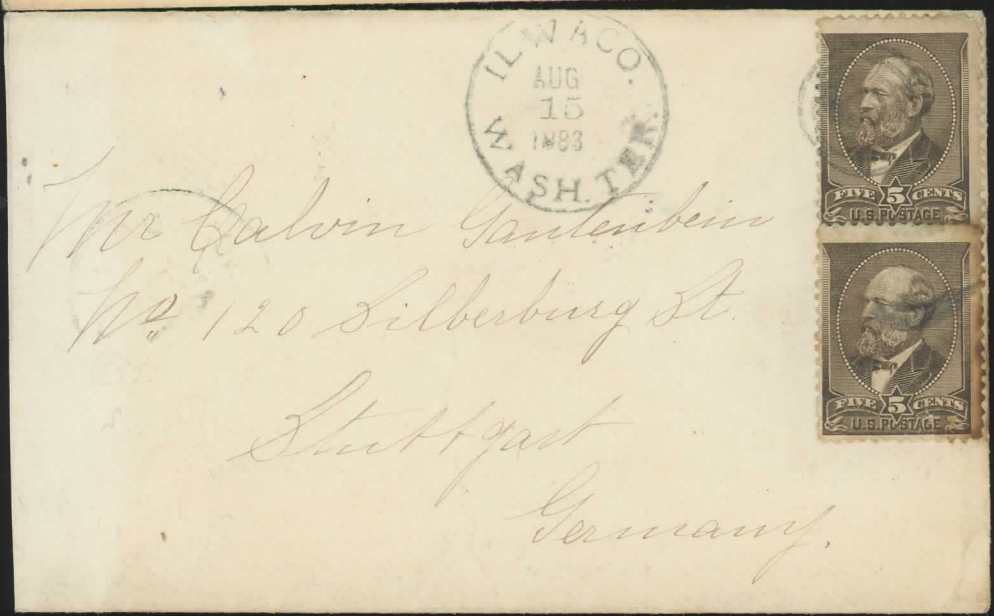 ILWACO.
AUG
15
1883
WASH. TER.
FIVE 5 CENTS
U.S. POSTAGE
FIVE 5 CENTS
U.S. POSTAGE
Mr Calvin Gantenbein
No 120 Silberburg St.
Stuttgart
Germany.